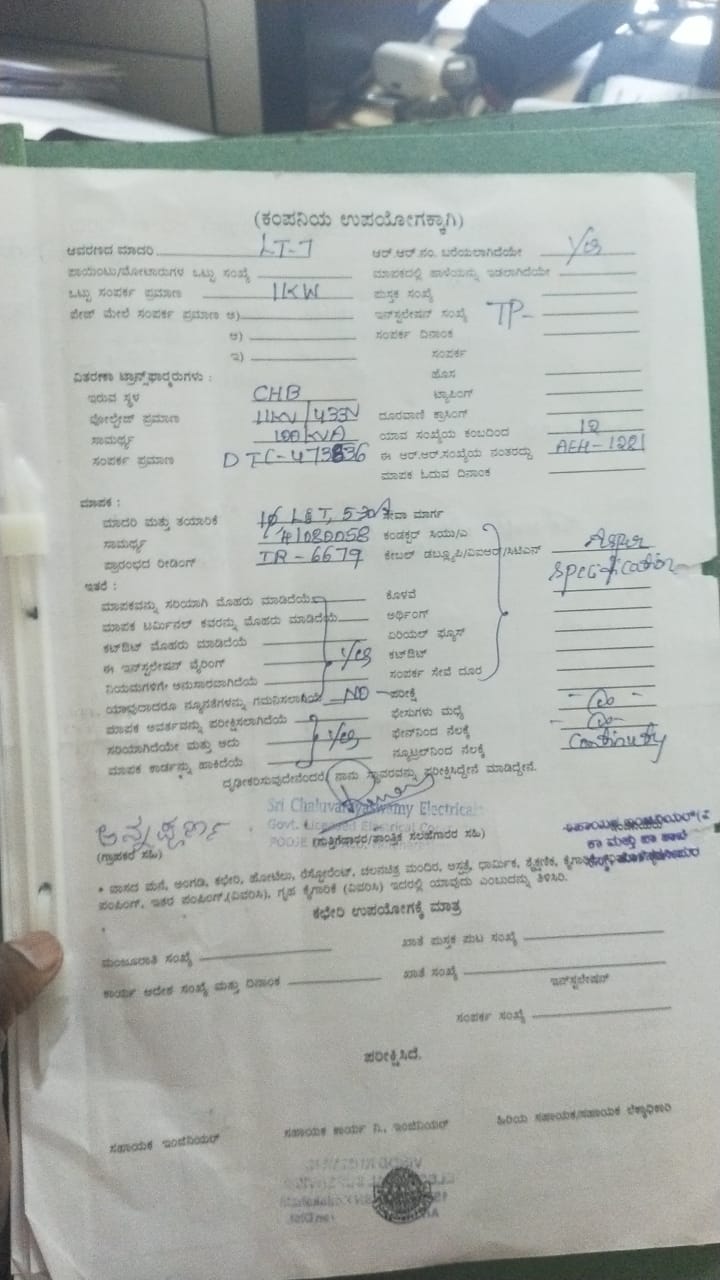 (ಕಂಪನಿಯ ಉಪಯೋಗಕ್ಕಾಗಿ)
ಆವರಣದ ಮಾದರಿ LT-7 ಆರ್.ಆರ್.ನಂ. ಬರೆಯಲಾಗಿದೆಯೇ Yes
ಪಾಯಿಂಟು/ಮೋಟಾರುಗಳ ಒಟ್ಟು ಸಂಖ್ಯೆ ಮಾಪಕದಲ್ಲಿ ಹಾಳೆಯನ್ನು ಇಡಲಾಗಿದೆಯೇ
ಒಟ್ಟು ಸಂಪರ್ಕ ಪ್ರಮಾಣ 1KW ಪುಸ್ತಕ ಸಂಖ್ಯೆ
ಪೇಜ್ ಮೇಲೆ ಸಂಪರ್ಕ ಪ್ರಮಾಣ ಅ) ಇನ್‌ಸ್ಟಲೇಷನ್ ಸಂಖ್ಯೆ TP-
ಆ) ಸಂಪರ್ಕ ದಿನಾಂಕ
ಇ) ಸಂಪರ್ಕ
ವಿತರಣಾ ಟ್ರಾನ್ಸ್‌ಫಾರ್ಮರುಗಳು : ಹೊಸ
ಇರುವ ಸ್ಥಳ CHB ಟ್ಯಾಪಿಂಗ್
ವೋಲ್ಟೇಜ್ ಪ್ರಮಾಣ 11KV/433V ದೂರವಾಣಿ ಕ್ರಾಸಿಂಗ್
ಸಾಮರ್ಥ್ಯ 100 KVA ಯಾವ ಸಂಖ್ಯೆಯ ಕಂಬದಿಂದ 12
ಸಂಪರ್ಕ ಪ್ರಮಾಣ DTC-473836 ಈ ಆರ್.ಆರ್.ಸಂಖ್ಯೆಯ ನಂತರದ್ದು AEH-1221
ಮಾಪಕ ಓದುವ ದಿನಾಂಕ
ಮಾಪಕ :
ಮಾದರಿ ಮತ್ತು ತಯಾರಿಕೆ 1Φ L&T, 5-30A ಸೇವಾ ಮಾರ್ಗ
ಸಾಮರ್ಥ್ಯ 41080058 ಕಂಡಕ್ಟರ್ ಸಿಯು/ಎ
ಪ್ರಾರಂಭದ ರೀಡಿಂಗ್ IR-6679 ಕೇಬಲ್ ಡಬ್ಲ್ಯೂಪಿ/ವಿಐಆರ್/ಸಿಟಿಎಸ್ Asper
ಇತರೆ : Specification
ಮಾಪಕವನ್ನು ಸರಿಯಾಗಿ ಮೊಹರು ಮಾಡಿದೆಯೆ ಕೊಳವೆ
ಮಾಪಕ ಟರ್ಮಿನಲ್ ಕವರನ್ನು ಮೊಹರು ಮಾಡಿದೆಯೆ ಅರ್ಥಿಂಗ್
ಕಟ್‌ಔಟ್ ಮೊಹರು ಮಾಡಿದೆಯೆ ಏರಿಯಲ್ ಫ್ಯೂಸ್
ಈ ಇನ್‌ಸ್ಟಲೇಷನ್ ವೈರಿಂಗ್ Yes ಕಟ್‌ಔಟ್
ನಿಯಮಗಳಿಗೇ ಅನುಸಾರವಾಗಿದೆಯೆ ಸಂಪರ್ಕ ಸೇವೆ ದೂರ
ಯಾವುದಾದರೂ ನ್ಯೂನತೆಗಳನ್ನು ಗಮನಿಸಲಾಗಿದೆಯೆ NO ಪರೀಕ್ಷೆ
ಮಾಪಕ ಆವರ್ತವನ್ನು ಪರೀಕ್ಷಿಸಲಾಗಿದೆಯೆ ಫೇಸುಗಳು ಮಧ್ಯೆ
ಸರಿಯಾಗಿದೆಯೇ ಮತ್ತು ಅದು Yes ಫೇಸ್‌ನಿಂದ ನೆಲಕ್ಕೆ
ಮಾಪಕ ಕಾರ್ಡನ್ನು ಹಾಕಿದೆಯೆ ನ್ಯೂಟ್ರಲ್‌ನಿಂದ ನೆಲಕ್ಕೆ Continuty
ದೃಢೀಕರಿಸುವುದೇನೆಂದರೆ, ನಾನು ಸ್ಥಾವರವನ್ನು ಪರೀಕ್ಷಿಸಿದ್ದೇನೆ ಮಾಡಿದ್ದೇನೆ.
Sri Chaluvarayaswamy Electrical
Govt. Licensed Electrical
ಅನ್ನಪೂರ್ಣ
(ಗ್ರಾಹಕರ ಸಹಿ) (ಗುತ್ತಿಗೆದಾರರ/ತಾಂತ್ರಿಕ ಸಲಹೆಗಾರರ ಸಹಿ)
• ವಾಸದ ಮನೆ, ಅಂಗಡಿ, ಕಛೇರಿ, ಹೋಟೆಲು, ರೆಸ್ಟೋರೆಂಟ್, ಚಲನಚಿತ್ರ ಮಂದಿರ, ಆಸ್ಪತ್ರೆ, ಧಾರ್ಮಿಕ, ಶೈಕ್ಷಣಿಕ,
ಪಂಪಿಂಗ್, ಇತರ ಪಂಪಿಂಗ್,(ವಿವರಿಸಿ), ಗೃಹ ಕೈಗಾರಿಕೆ (ವಿವರಿಸಿ) ಇದರಲ್ಲಿ ಯಾವುದು ಎಂಬುದನ್ನು ತಿಳಿಸಿರಿ.
ಕಛೇರಿ ಉಪಯೋಗಕ್ಕೆ ಮಾತ್ರ
ಮಂಜೂರಾತಿ ಸಂಖ್ಯೆ ಖಾತೆ ಪುಸ್ತಕ ಪುಟ ಸಂಖ್ಯೆ
ಕಾರ್ಯ ಆದೇಶ ಸಂಖ್ಯೆ ಮತ್ತು ದಿನಾಂಕ ಖಾತೆ ಸಂಖ್ಯೆ
ಇನ್‌ಸ್ಟಲೇಷನ್
ಸಂಪರ್ಕ ಸಂಖ್ಯೆ
ಪರೀಕ್ಷಿಸಿದೆ.
ಸಹಾಯಕ ಇಂಜಿನಿಯರ್ ಸಹಾಯಕ ಕಾರ್ಯ ನಿ., ಇಂಜಿನಿಯರ್ ಹಿರಿಯ ಸಹಾಯಕ/ಸಹಾಯಕ ಲೆಕ್ಕಾಧಿಕಾರಿ